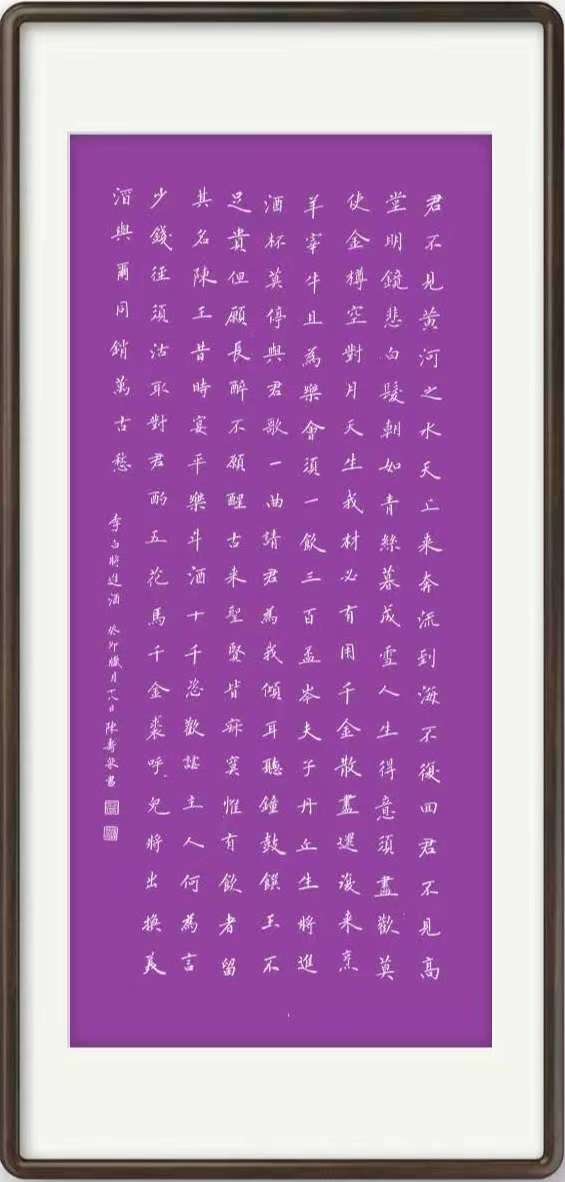 君不見黃河之水天上來奔流到海不復回君不見高
堂明鏡悲白髮朝如青絲暮成雪人生得意須盡歡莫
使金樽空對月天生我材必有用千金散盡還復來烹
羊宰牛且為樂會須一飲三百盃岑夫子丹丘生將進
酒杯莫停與君歌一曲請君為我傾耳聽鐘鼓饌玉不
足貴但願長醉不願醒古來聖賢皆寂寞惟有飲者留
其名陳王昔時宴平樂斗酒十千恣歡謔主人何為言
少錢徑須沽取對君酌五花馬千金裘呼兒將出換美
酒與爾同銷萬古愁
李白將進酒 癸卯臘月十八日陳壽書